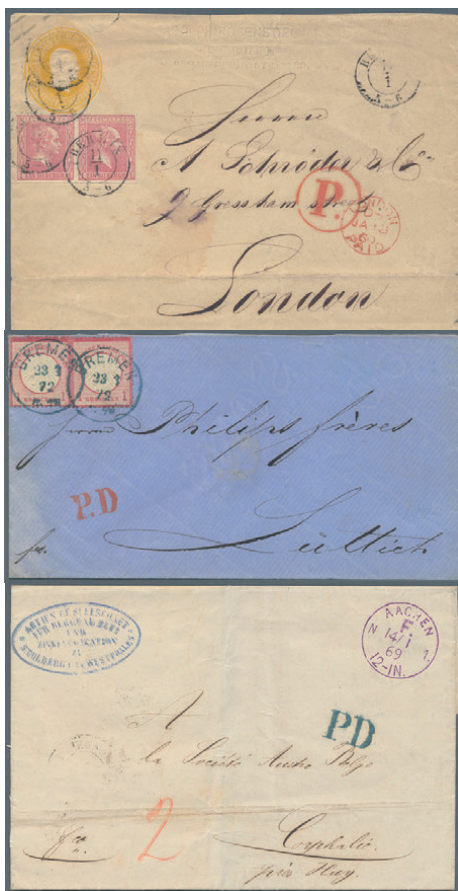 BERLIN
11
1
5-6
BERLIN
1
5-6
Herrn
A Schröder & Co
9 Gressham street
P.
LONDON
PAID
London
BREMEN
23 1
72
BREMEN
23 1
72
Herrn Philips frères
P.D
fr. Lüttich
ACTIEN GESELLSCHAFT
FÜR BERGBAU, BLEI
UND
ZINKFABRIKATION
ZU
STOLBERG UND IN WESTFALEN
AACHEN
F.
N 14/1 1.
69
12-IN.
PD
A
la Société Austro Belge
2
fro. Corphalie
près Huy.